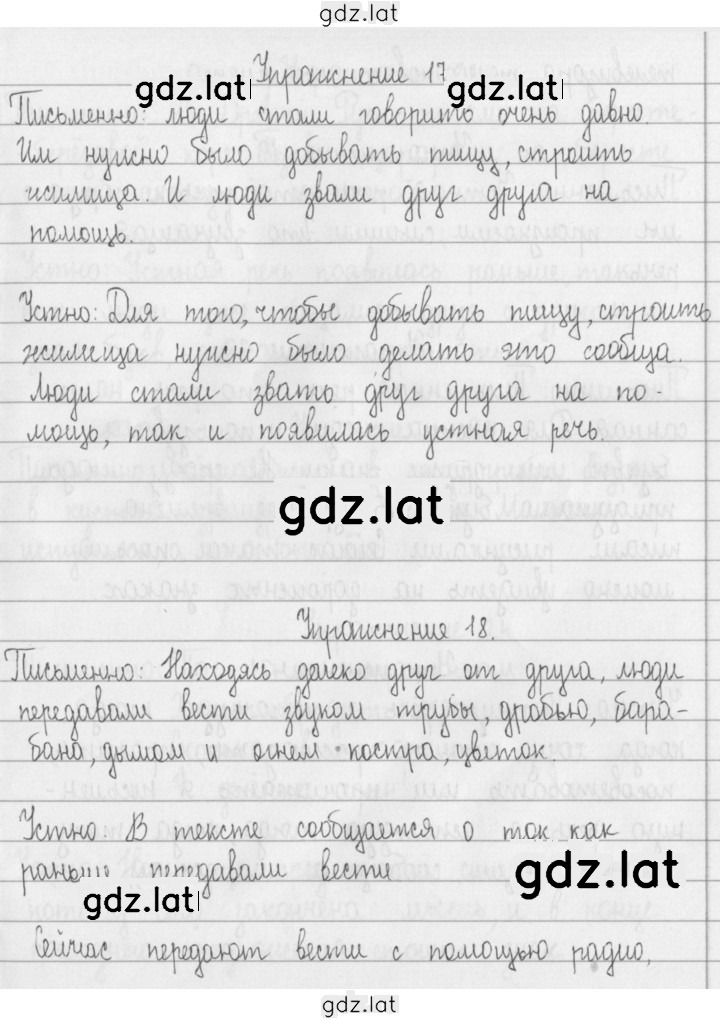 gdz.lat
Упражнение 17
gdz.lat gdz.lat
Письменно: люди стали говорить очень давно.
Им нужно было добывать пищу, строить
жилища. И люди звали друг друга на
помощь.
Устно: Для того, чтобы добывать пищу, строить
жилища нужно было делать это сообща.
Люди стали звать друг друга на по-
мощь, так и появилась устная речь.
gdz.lat
Упражнение 18.
Письменно: Находясь далеко друг от друга, люди
передавали вести звуком трубы, дробью, бара-
бана, дымом и огнем костра, цветок
Устно: В тексте сообщается о том как
раньше передавали вести
gdz.lat
gdz.lat
Сейчас передают вести с помощью радио,
gdz.lat